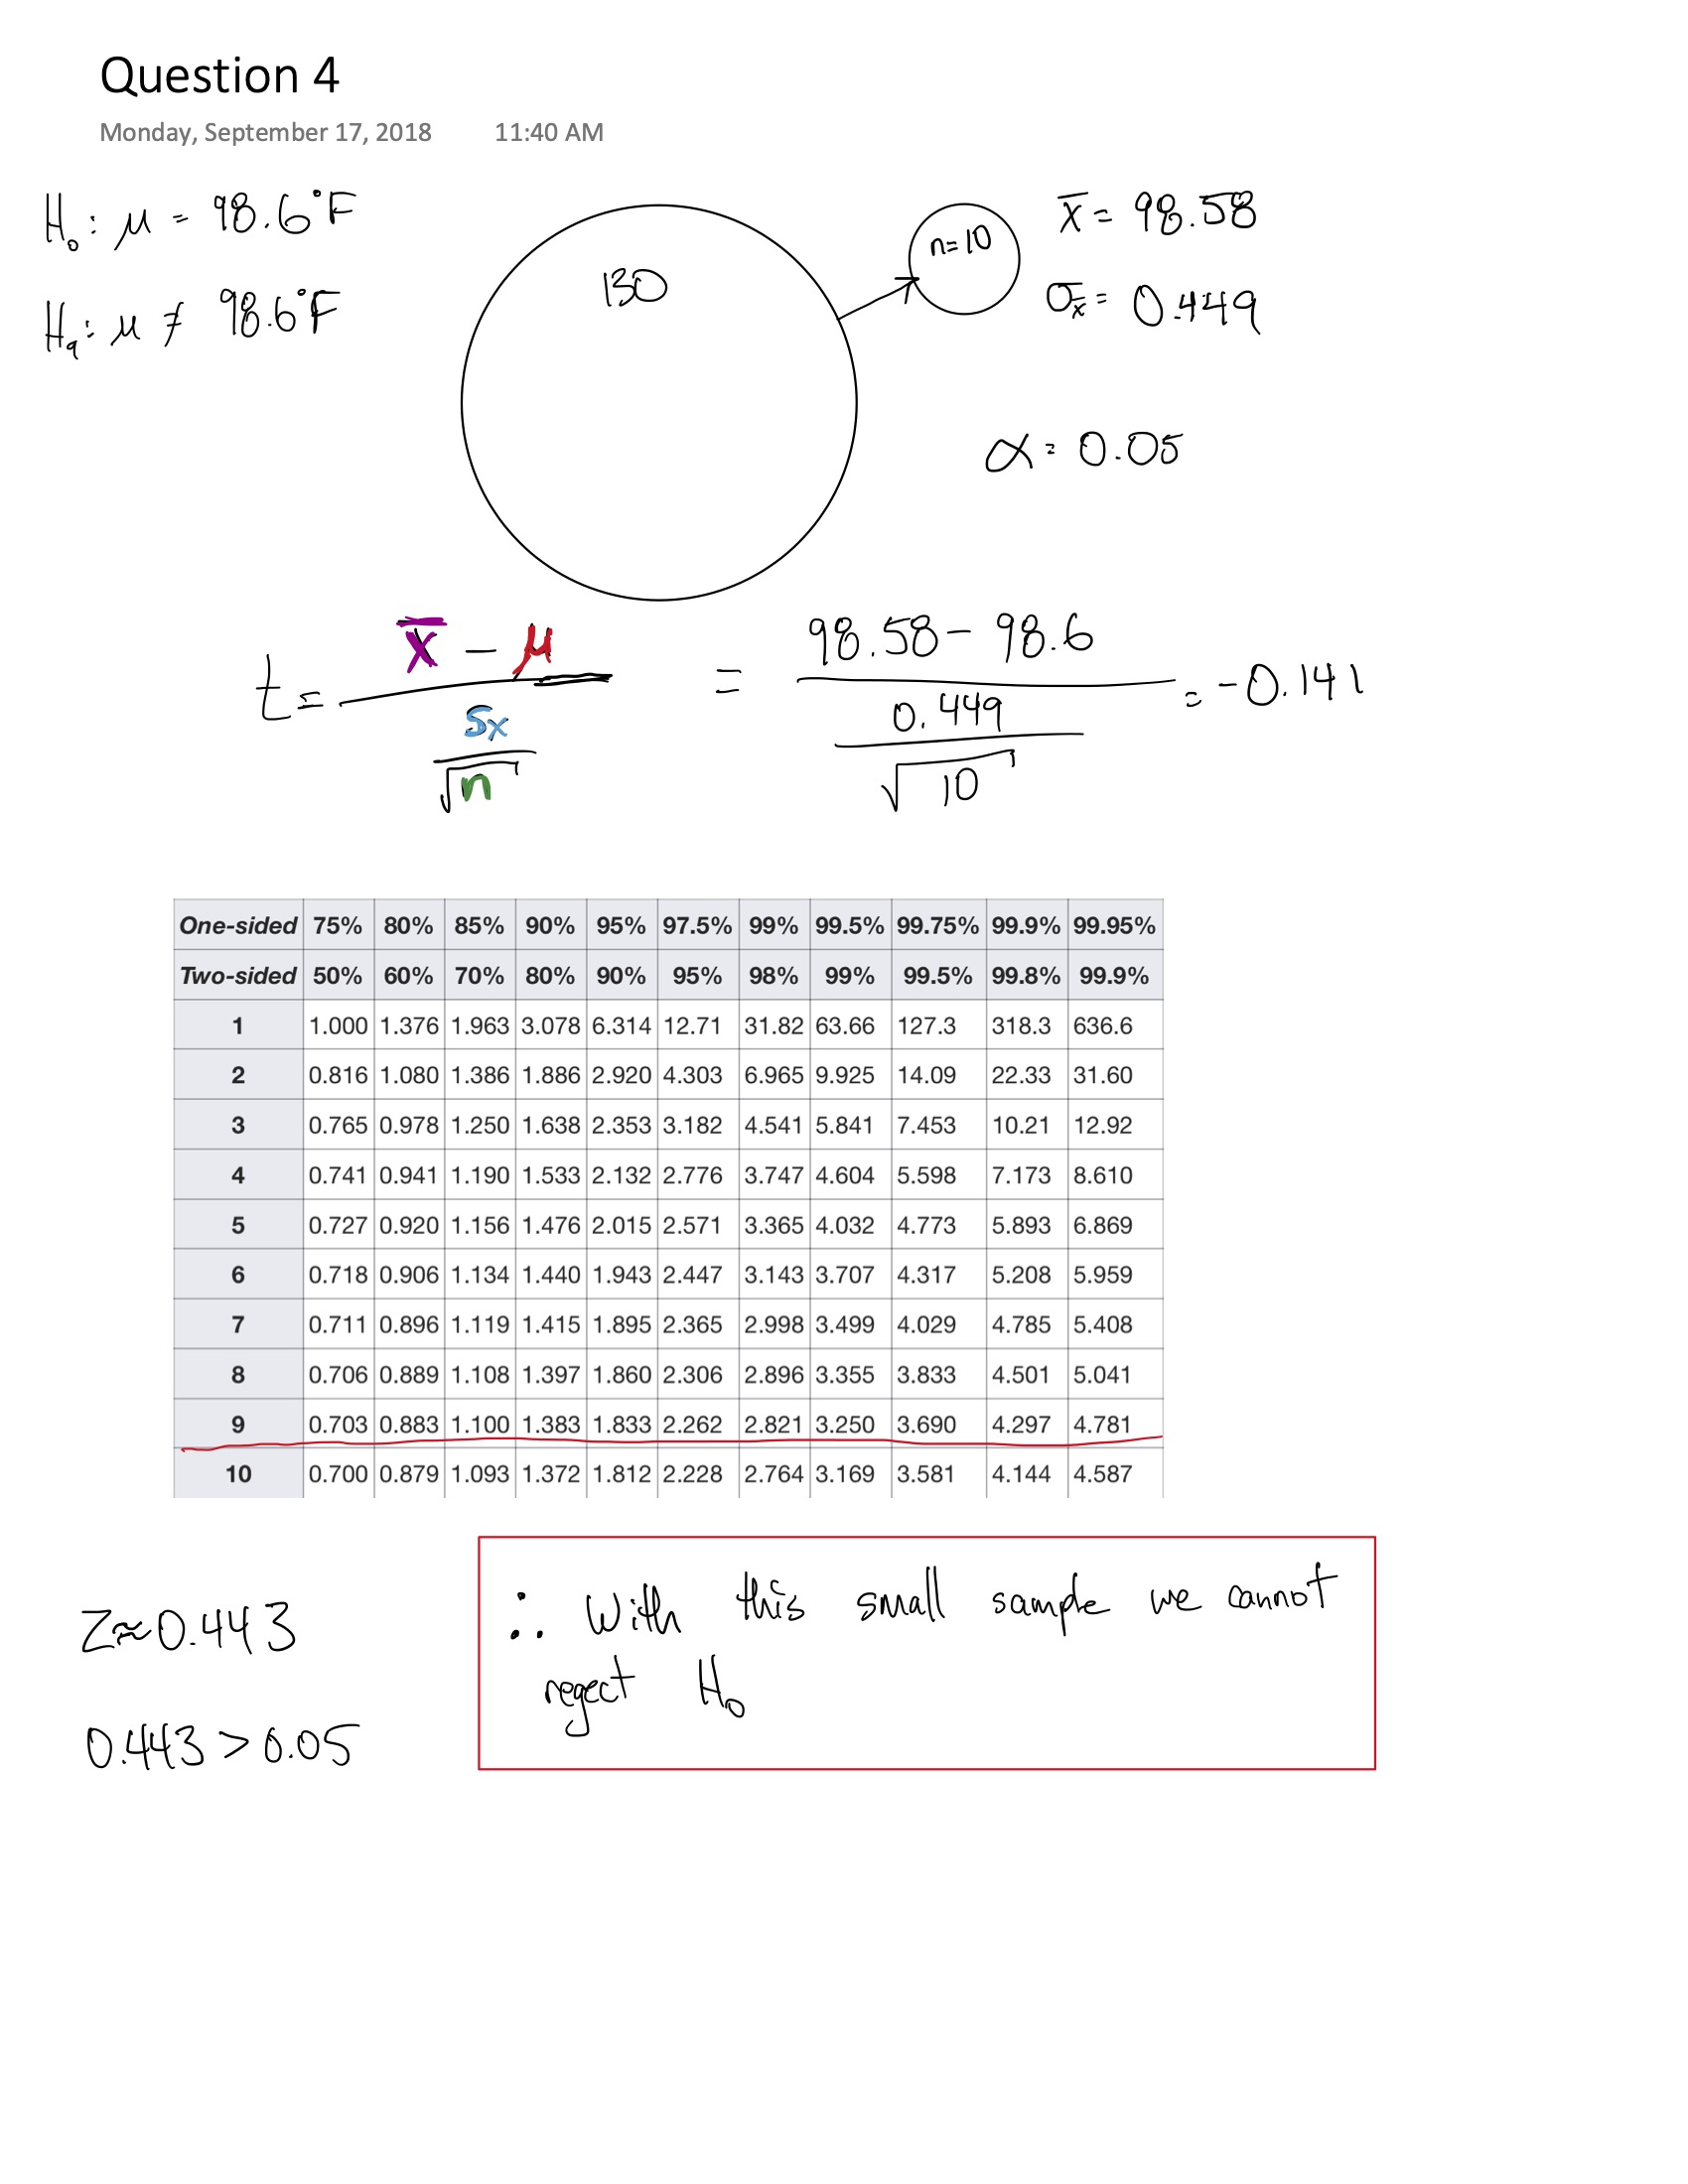 Question 4
Monday, September 17, 2018 11:40 AM
H₀: μ = 98.6°F
Hₐ: μ ≠ 98.6°F
130
n=10
x̄ = 98.58
σx̄ = 0.449
α = 0.05
t = (x̄ - μ) / (Sx / √n) = (98.58 - 98.6) / (0.449 / √10) = -0.141
One-sided 75% 80% 85% 90% 95% 97.5% 99% 99.5% 99.75% 99.9% 99.95%
Two-sided 50% 60% 70% 80% 90% 95% 98% 99% 99.5% 99.8% 99.9%
1 1.000 1.376 1.963 3.078 6.314 12.71 31.82 63.66 127.3 318.3 636.6
2 0.816 1.080 1.386 1.886 2.920 4.303 6.965 9.925 14.09 22.33 31.60
3 0.765 0.978 1.250 1.638 2.353 3.182 4.541 5.841 7.453 10.21 12.92
4 0.741 0.941 1.190 1.533 2.132 2.776 3.747 4.604 5.598 7.173 8.610
5 0.727 0.920 1.156 1.476 2.015 2.571 3.365 4.032 4.773 5.893 6.869
6 0.718 0.906 1.134 1.440 1.943 2.447 3.143 3.707 4.317 5.208 5.959
7 0.711 0.896 1.119 1.415 1.895 2.365 2.998 3.499 4.029 4.785 5.408
8 0.706 0.889 1.108 1.397 1.860 2.306 2.896 3.355 3.833 4.501 5.041
9 0.703 0.883 1.100 1.383 1.833 2.262 2.821 3.250 3.690 4.297 4.781
10 0.700 0.879 1.093 1.372 1.812 2.228 2.764 3.169 3.581 4.144 4.587
Z≈0.443
0.443 > 0.05
∴ With this small sample we cannot
regect H₀